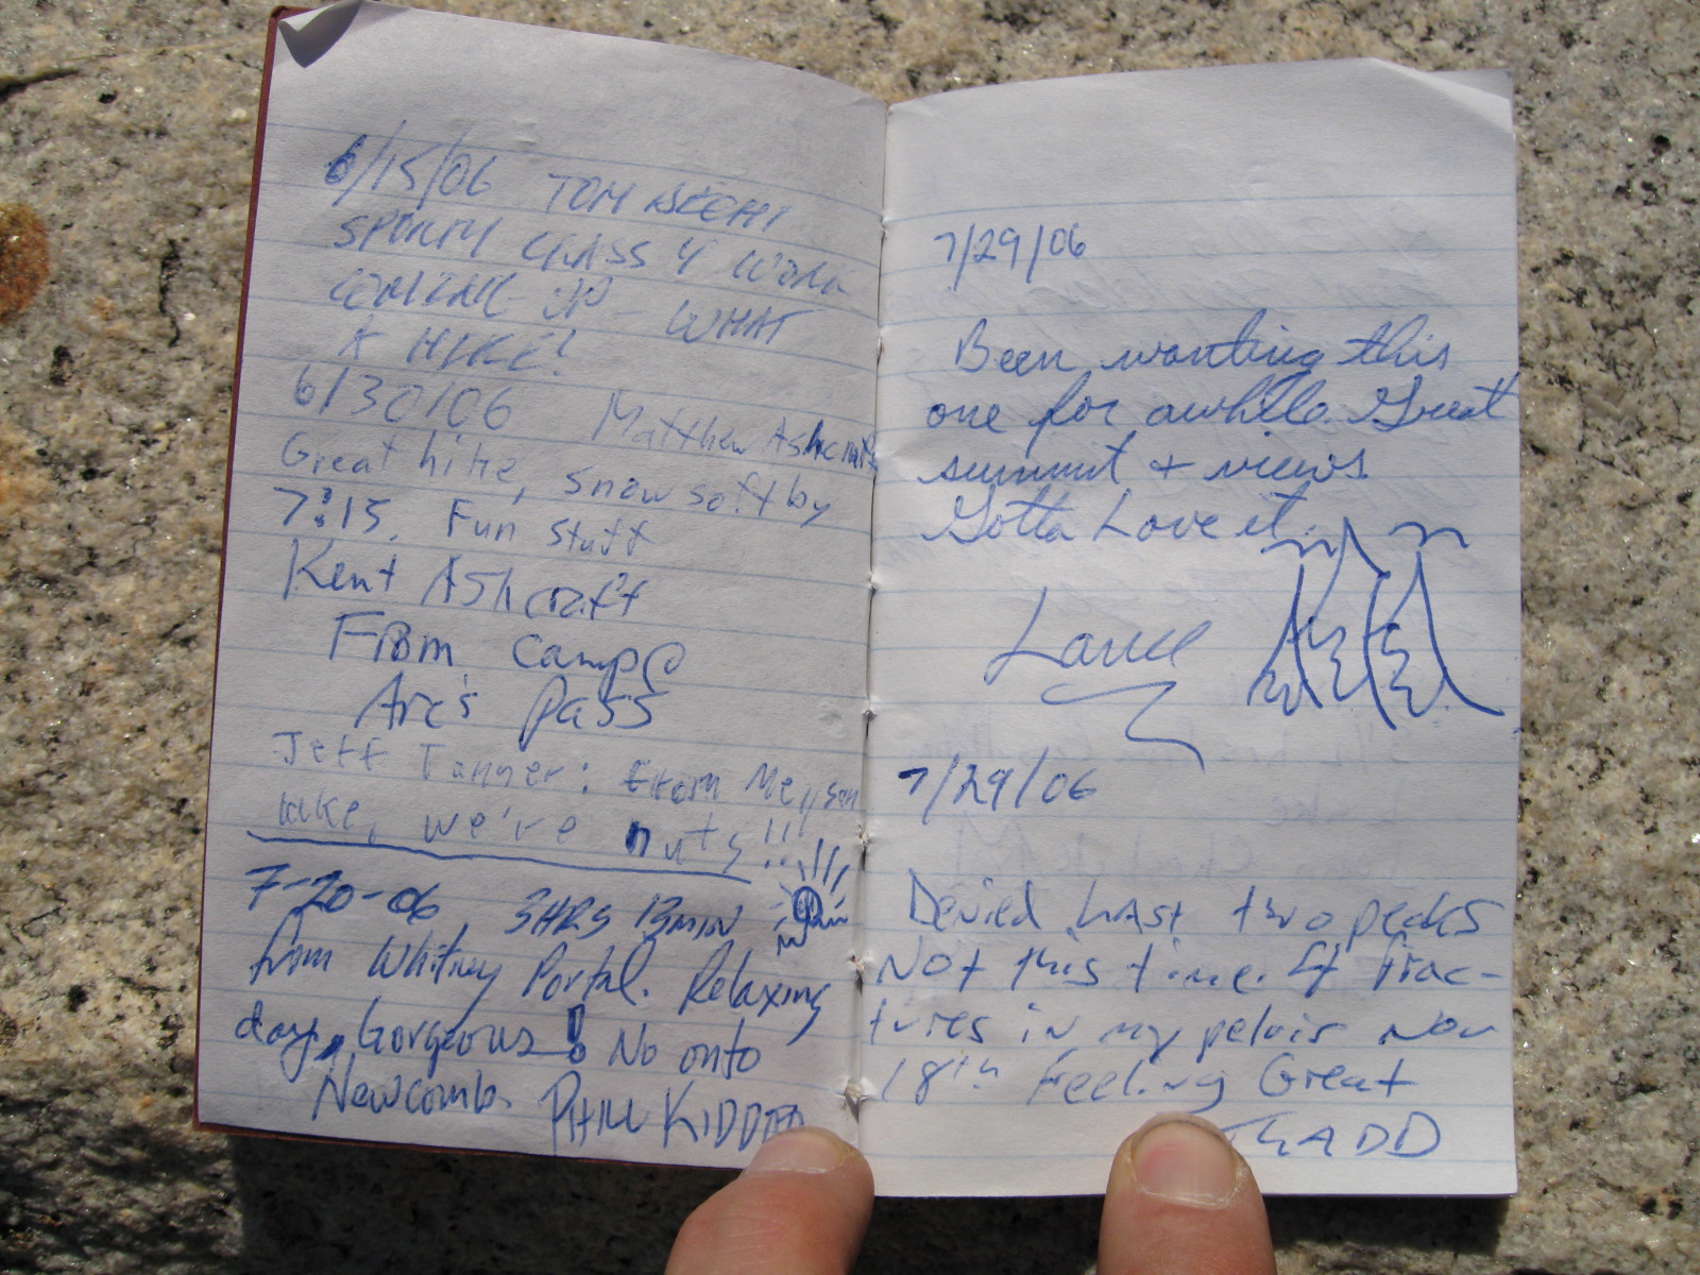 6/15/06 TOM
SPORTY CLASS 4 WORK
COMING UP - WHAT
A HIKE!
6/30/06 Matthew Ashcraft
Great hike, snow soft by
7:15. Fun stuff
Kent Ashcraft
From camp@
Arc's Pass
Jeff Tanner: From Meysan
lake, we're nuts!!!
7-20-06, 3HRS 13MIN
from Whitney Portal. Relaxing
day, Gorgeous! No onto
Newcomb. PHIL KIDDER
7/29/06
Been wanting this
one for awhile. Great
summit + views
Gotta Love it.
Lance
7/29/06
Denied Last two peaks
Not this time. 4 frac-
tures in my pelvis Nov
18th Feeling Great
THADD